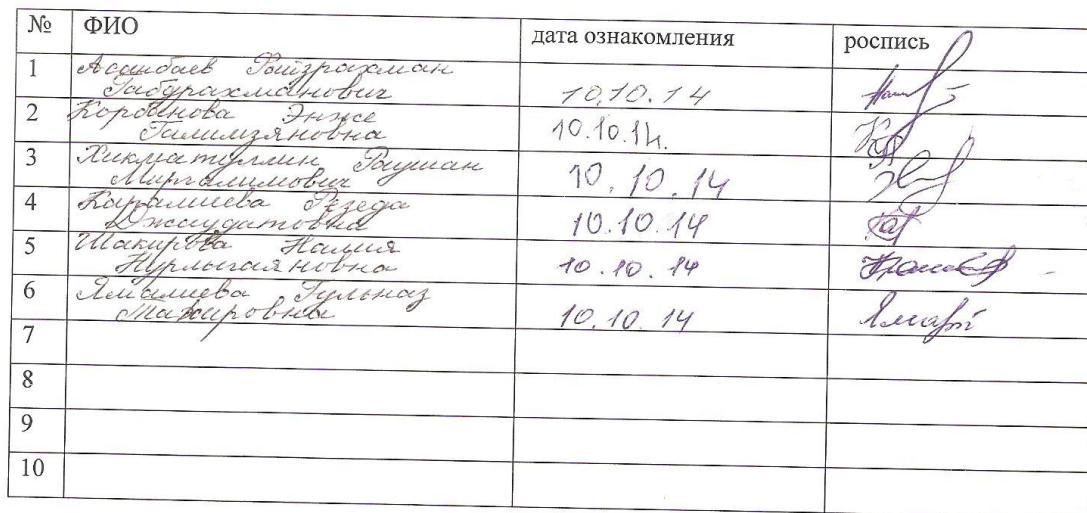 № ФИО дата ознакомления роспись
1 Асанбаев Фаизрахман
Габдрахманович 10.10.14
2 Корбанова Энже
Галимзяновна 10.10.14.
3 Хикматуллин Раушан
Миргалимович 10.10.14
4 Карамиева Резеда
Джаудатовна 10.10.14
5 Шакирова Налия
Нурлыгаяновна 10.10.14
6 Ямалиева Гульназ
10.10.14
7
8
9
10